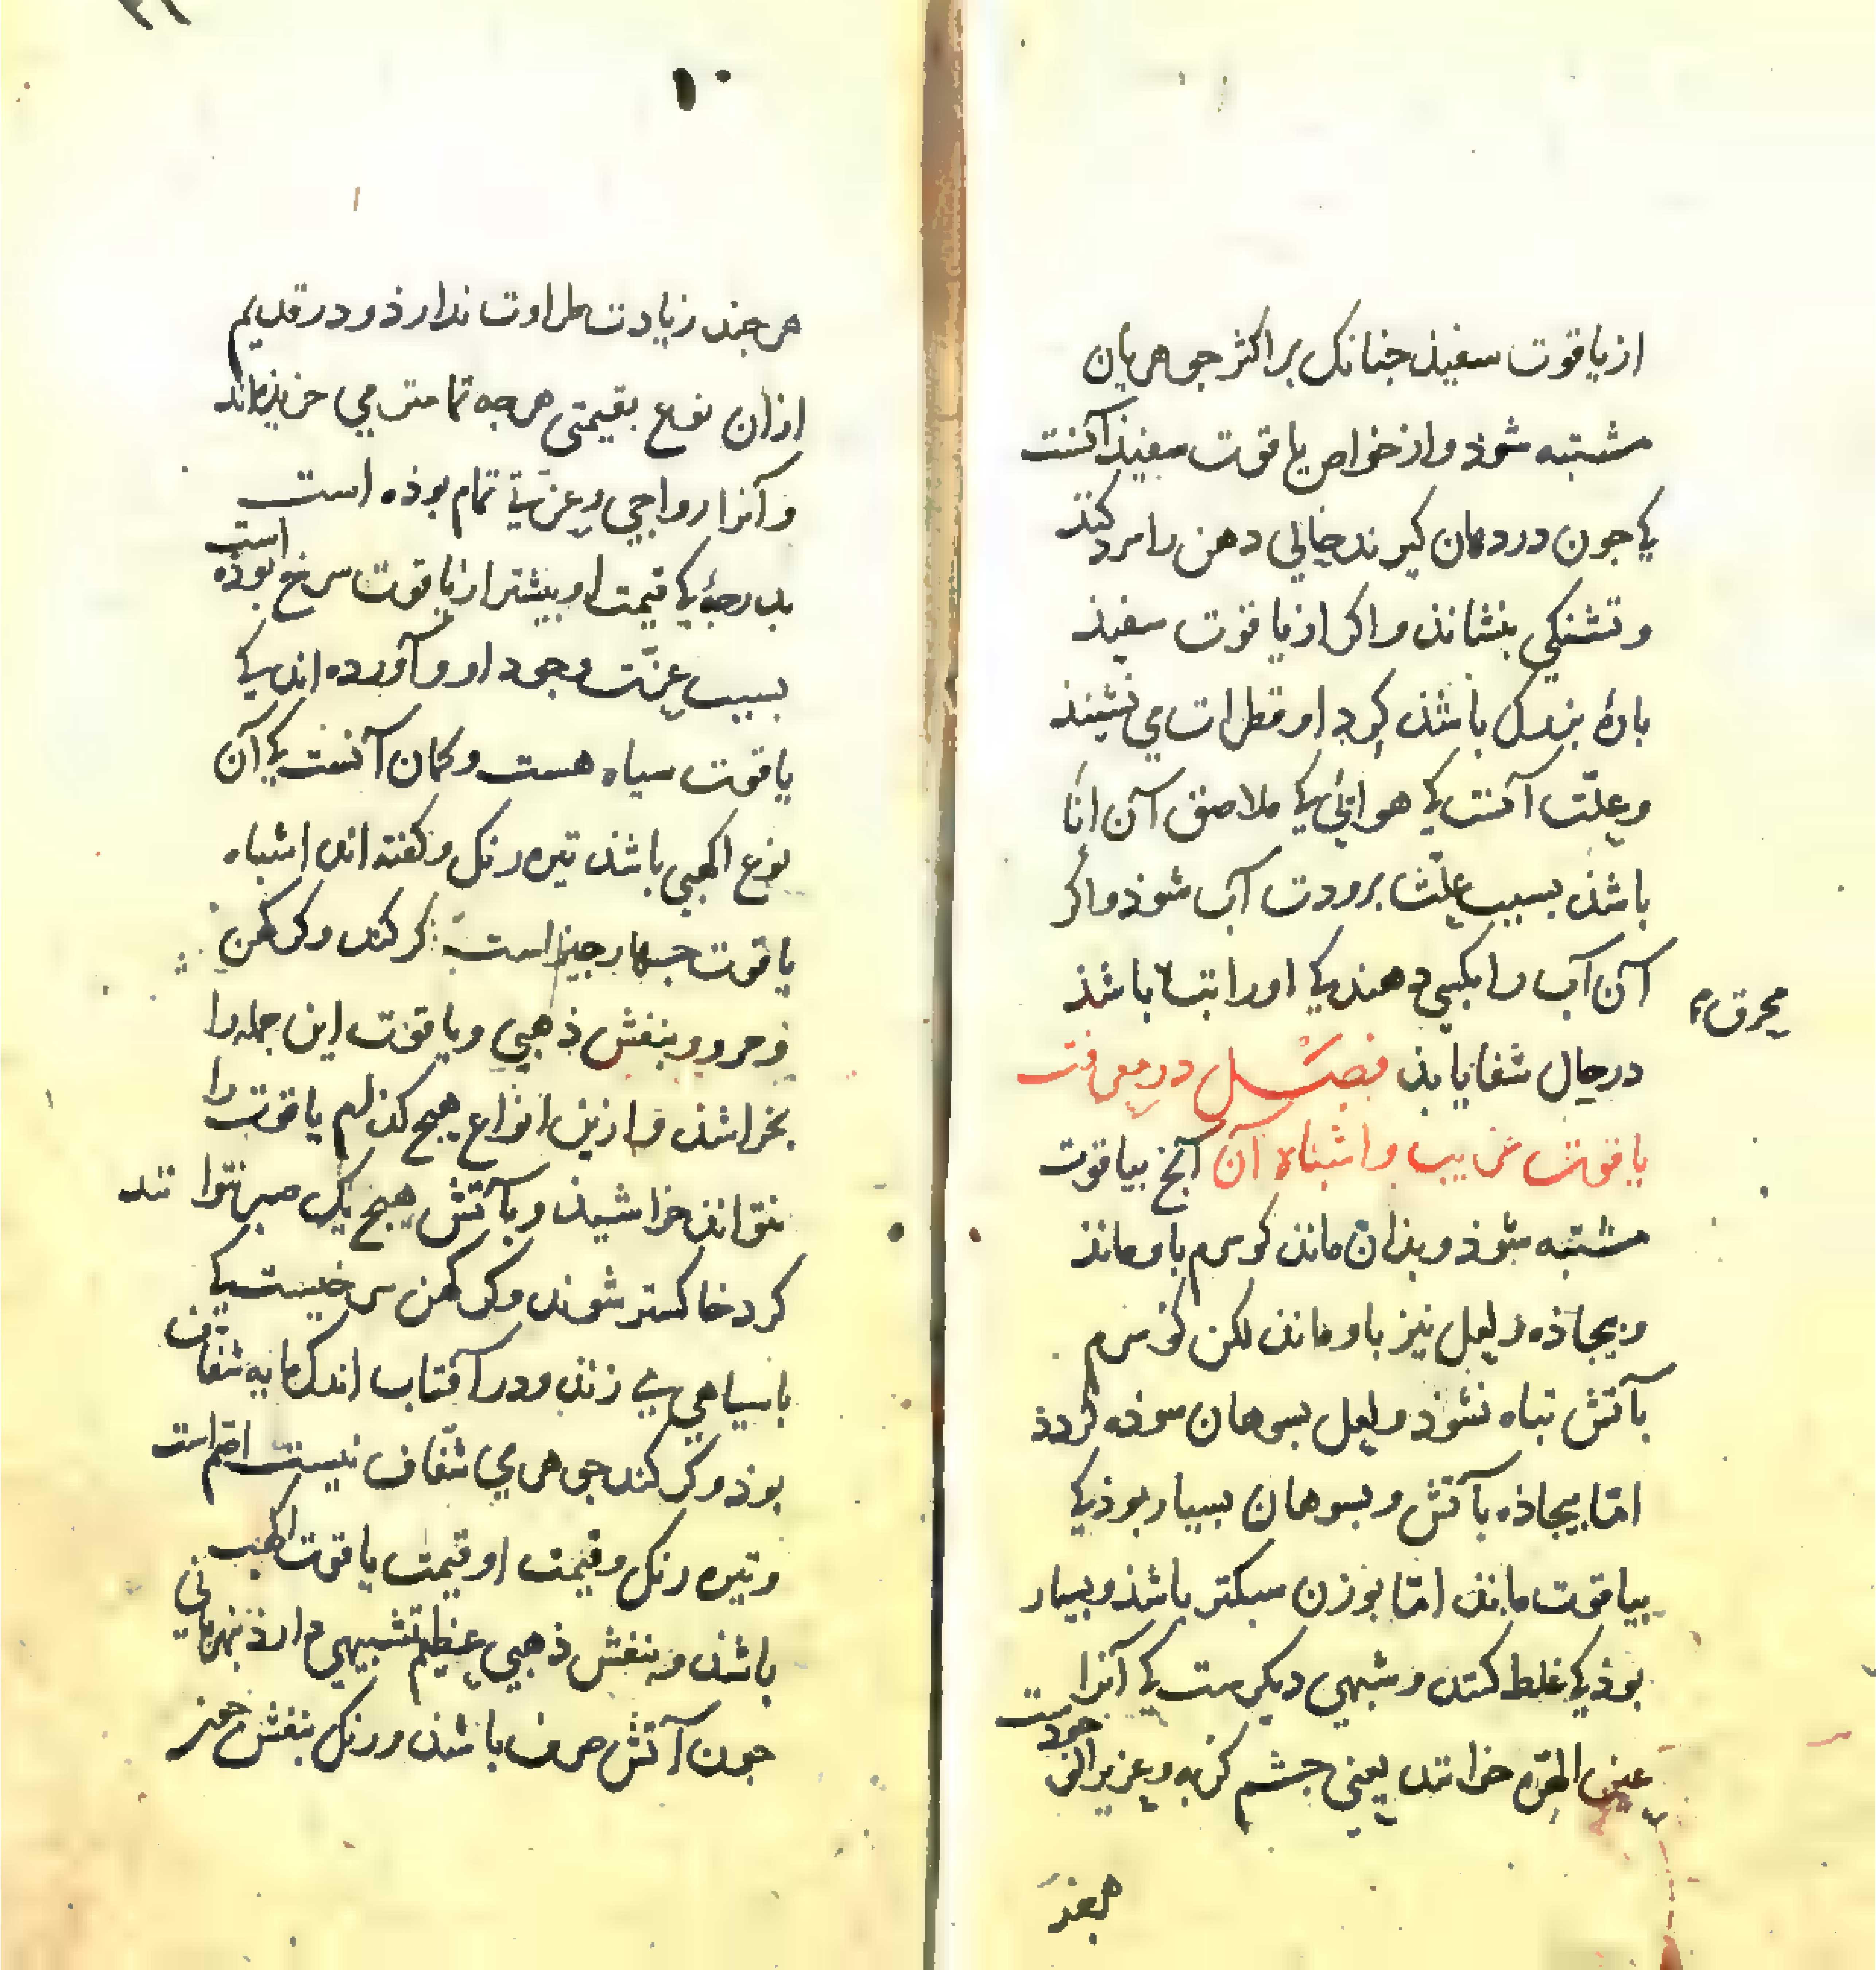 از یاقوت سفیذ جنانک بر اکثر جوهریان
مشتبه شوذ و از خواص یاقوت سفیذ آنست
کی جون در دهان کیرند حالی دهن را سرد کنذ
و تشنکی بنشاند و اکر از یاقوت سفیذ
بارهٔ بزرک باشذ کرد او قطرات می نشیند
و علّت آنست کی هوائی کی ملاصق آن انا
باشذ بسبب علّت برودت آب شوذ و اکر
آن آب را بکسی دهند کی او را تب باشذ
محرق
در حال شفا یابذ فصل در معرفت
یاقوت غریب و اشباه آن آنج بیاقوت
مشتبه شوذ و بذان ماند کرسم باو ماند
و بیجاذه و لعل نیز باو ماند لکن کرسم
بآتش تباه نشوذ و لعل بسوهان سوذه کردذ
امّا بیجاذه بآتش و بسوهان بسیار بوذ کی
بیاقوت ماند امّا بوزن سبکتر باشذ و بسیار
بوذ کی غلط کنند و شبهی دیکرست کی آنرا
عین الهرّه خوانند یعنی جشم کربه و عزیز الوجودست
هرجند
۱۰
هرجند زیادت طراوت ندارذ و در قدیم
ازان نوع بقیمتی هرجه تمامتر می خریذه‌اند
و آنرا رواجی و عزّتی تمام بوذه است
بدرجهٔ کی قیمت او بیشتر از یاقوت سرخ بوذه است
بسبب عزّت وجود او و آورده اند کی
یاقوت سیاه هست و کمان آنست کی آن
نوع اکهبی باشذ تیره رنک و کفته اند اشباه
یاقوت جهار جیز است کرکند و کرکهن
و جرو و بنفش ذهبی و یاقوت این جمله را
بخراشذ و ازین انواع هیج کذام یاقوت را
نتواند خراشیذ و بآتش هیج یک صبر نتوانند
کرد خاکستر شوند و کرکهن سرخیست کی
با سیاهی می زند و در آفتاب اندک مایه شفاف
بوذ و کرکند جوهری شفّاف نیست اقتم است
و تیره رنک و قیمت او قیمت یاقوت اکهب
باشذ و بنفش ذهبی عظیم تشبیهی دارذ بهرمانی
جون آتش صرف باشذ و رنک بنفش جز